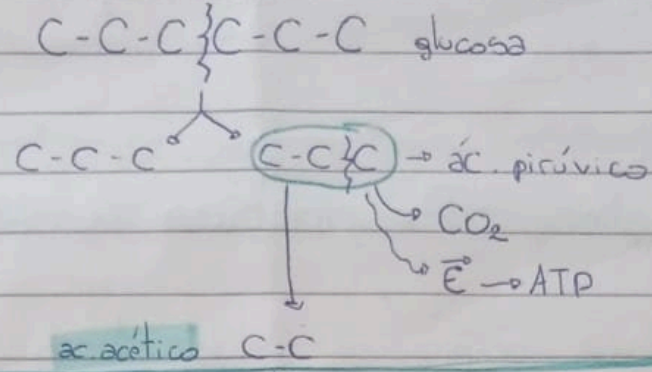 C-C-C C-C-C glucosa
C-C-C C-C C → ác. pirúvico
CO₂
E → ATP
ac. acético C-C